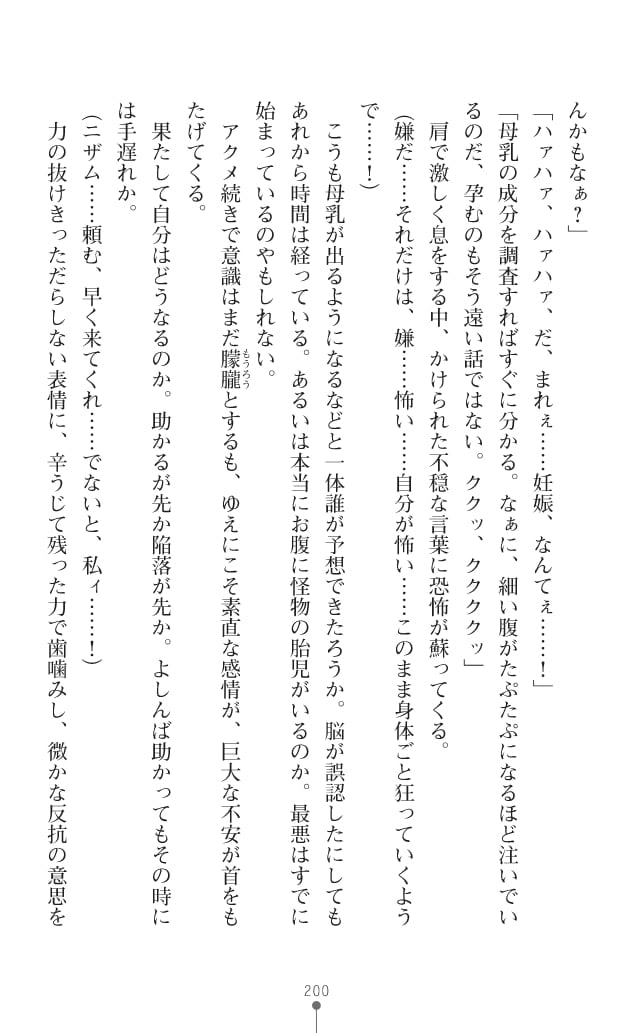 んかもなぁ？」
「ハァハァ、ハァハァ、だ、まれぇ……妊娠、なんてぇ……！」
「母乳の成分を調査すればすぐに分かる。なぁに、細い腹がたぷたぷになるほど注いでい
るのだ、孕むのもそう遠い話ではない。ククッ、クククククッ」
肩で激しく息をする中、かけられた不穏な言葉に恐怖が蘇ってくる。
（嫌だ……それだけは、嫌……怖い……自分が怖い……このまま身体ごと狂っていくよう
で……！）
こうも母乳が出るようになるなどと一体誰が予想できたろうか。脳が誤認したにしても
あれから時間は経っている。あるいは本当にお腹に怪物の胎児がいるのか。最悪はすでに
始まっているのやもしれない。
アクメ続きで意識はまだ朦朧とするも、ゆえにこそ素直な感情が、巨大な不安が首をも
もうろう
たげてくる。
果たして自分はどうなるのか。助かるが先か陥落が先か。よしんば助かってもその時に
は手遅れか。
（ニザム……頼む、早く来てくれ……でないと、私ィ……！）
力の抜けきっただらしない表情に、辛うじて残った力で歯噛みし、微かな反抗の意思を
200